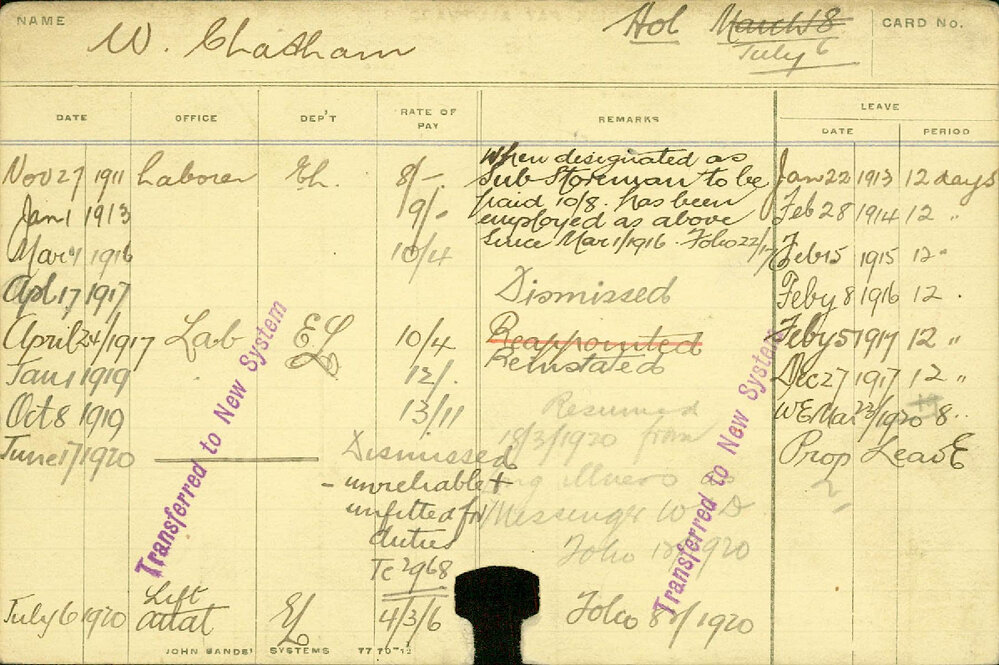 NAME W. Chatham Hol March 8 CARD No.
July 6
LEAVE
DATE OFFICE DEP'T RATE OF PAY REMARKS DATE PERIOD
Nov 27 1911 Laborer Eh. 8/-. When designated as Jan 22 1913 12 days
Sub Storeman to be
Jan 1 1913 9/- paid 10/8. has been Feb 28 1914 12 "
employed as above
Mar 1 1916 10/4 Since Mar 1/1916. Folio 22/17 Feb 15 1915 12 "
Apl. 17 1917 Dismissed Feby 8 1916 12 .
April 24/1917 Lab EL 10/4 Reappointed Feby 5 1917 12 "
Reinstated
Jan 1 1919 12/. Dec 27 1917 12 "
Oct 8 1919 13/11 Resumed WE Mar 23/1920 8 "
18/3/1920 from
June 17/1920 Dismissed Prop Leave
- unreliable + Illness as
unfitted for Messenger W D
duties Folio 1920
Tc 2968
Lift
July 6 1920 attat EL 4/3/6 Folio 1920
Transferred to New System
Transferred to New System
JOHN SANDS' SYSTEMS